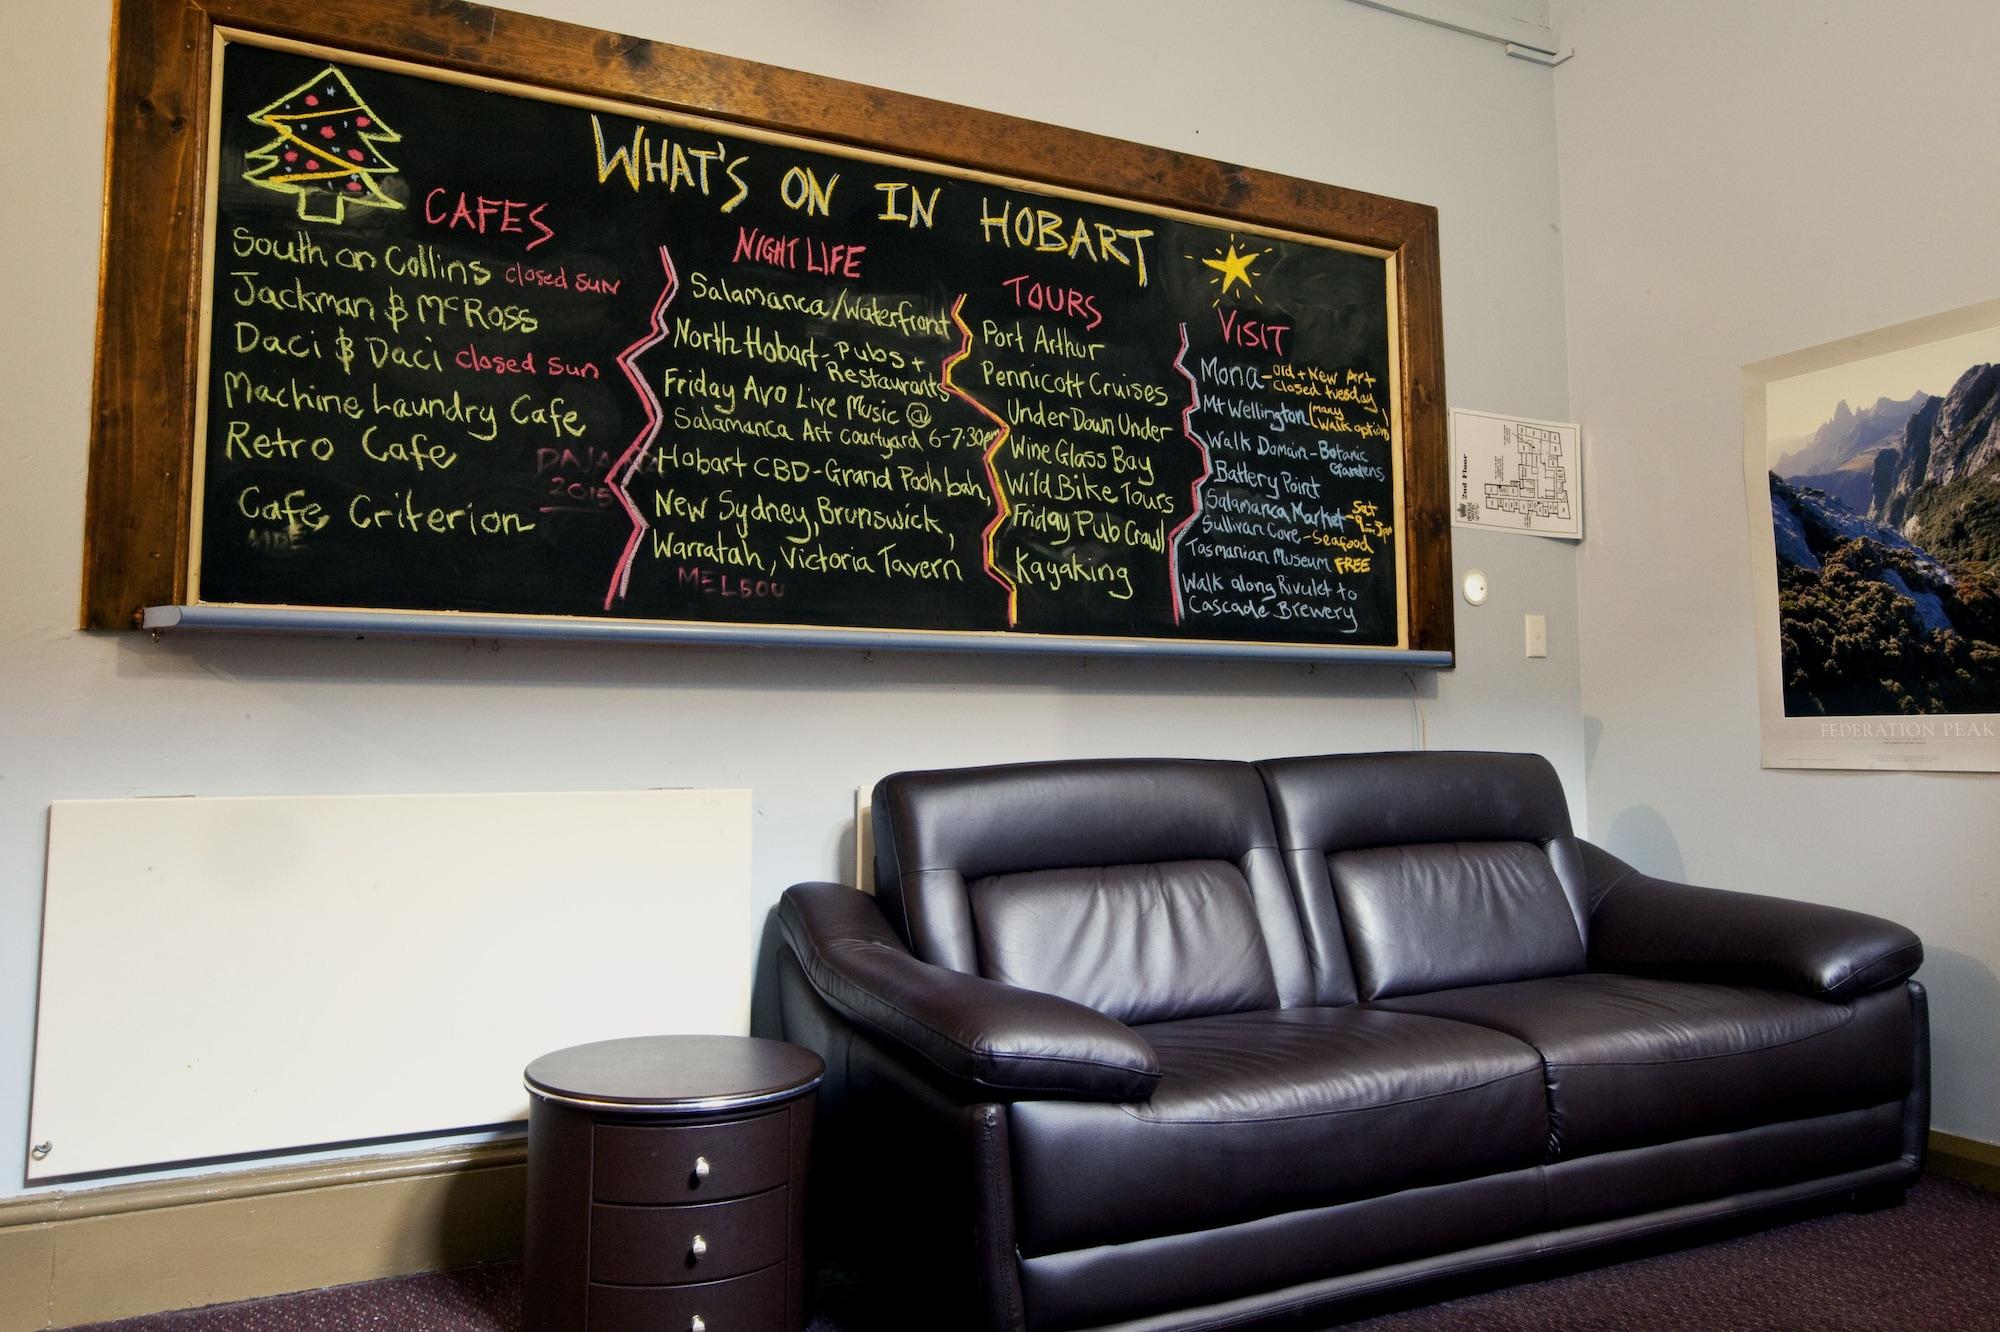 WHAT'S ON IN HOBART
CAFES
South on Collins closed sun
Jackman & McRoss
Daci & Daci closed sun
Machine Laundry Cafe
Retro Cafe
Cafe Criterion
2015
NIGHT LIFE
Salamanca/Waterfront
North Hobart - Pubs +
Restaurants
Friday Avo Live Music @
Salamanca Art Courtyard 6-7.30pm
Hobart CBD - Grand Poohbah,
New Sydney, Brunswick,
Warratah, Victoria Tavern
MELBOU
TOURS
Port Arthur
Pennicott Cruises
Under Down Under
Wine Glass Bay
Wild Bike Tours
Friday Pub Crawl
Kayaking
VISIT
Mona - Old + New Art
Closed tuesday
Mt Wellington (many
walk options)
Walk Domain - Botanic
Gardens
Battery Point
Salamanca Market - Sat
9-3pm
Sullivan Cove - Seafood
Tasmanian Museum FREE
Walk along Rivulet to
Cascade Brewery
2nd Floor
FEDERATION PEAK